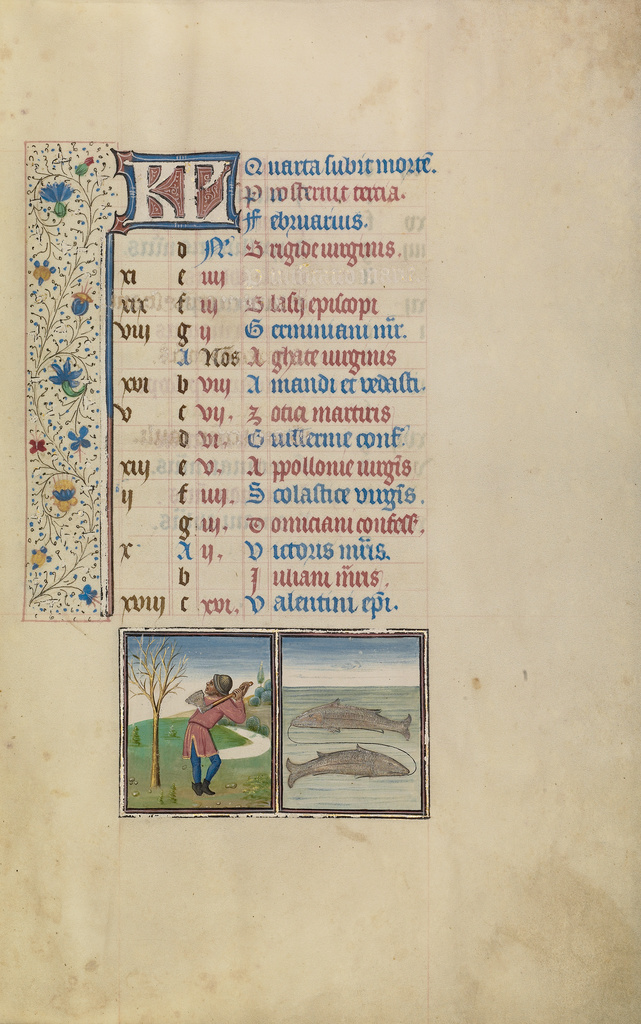 KL Quarta subit mortē.
Prosternit tercia.
Februarius.
d N. Brigide uirginis.
xi e iiij
xix f iij Blasij episcopi
viij g ij G
A Nōs Aghate uirginis
xvi b viij Amandi et vedasti.
v c vij. Zotici martiris
d vi. Guillerme conf
xiij e v. Appollonie uirgīs
ij f iiij. Scolastice virgīs.
g iij. Domiciani confess.
x A ij. Victoris mr̄is.
b Juliani mr̄is.
xviij c xvi. Valentini ep̄i.